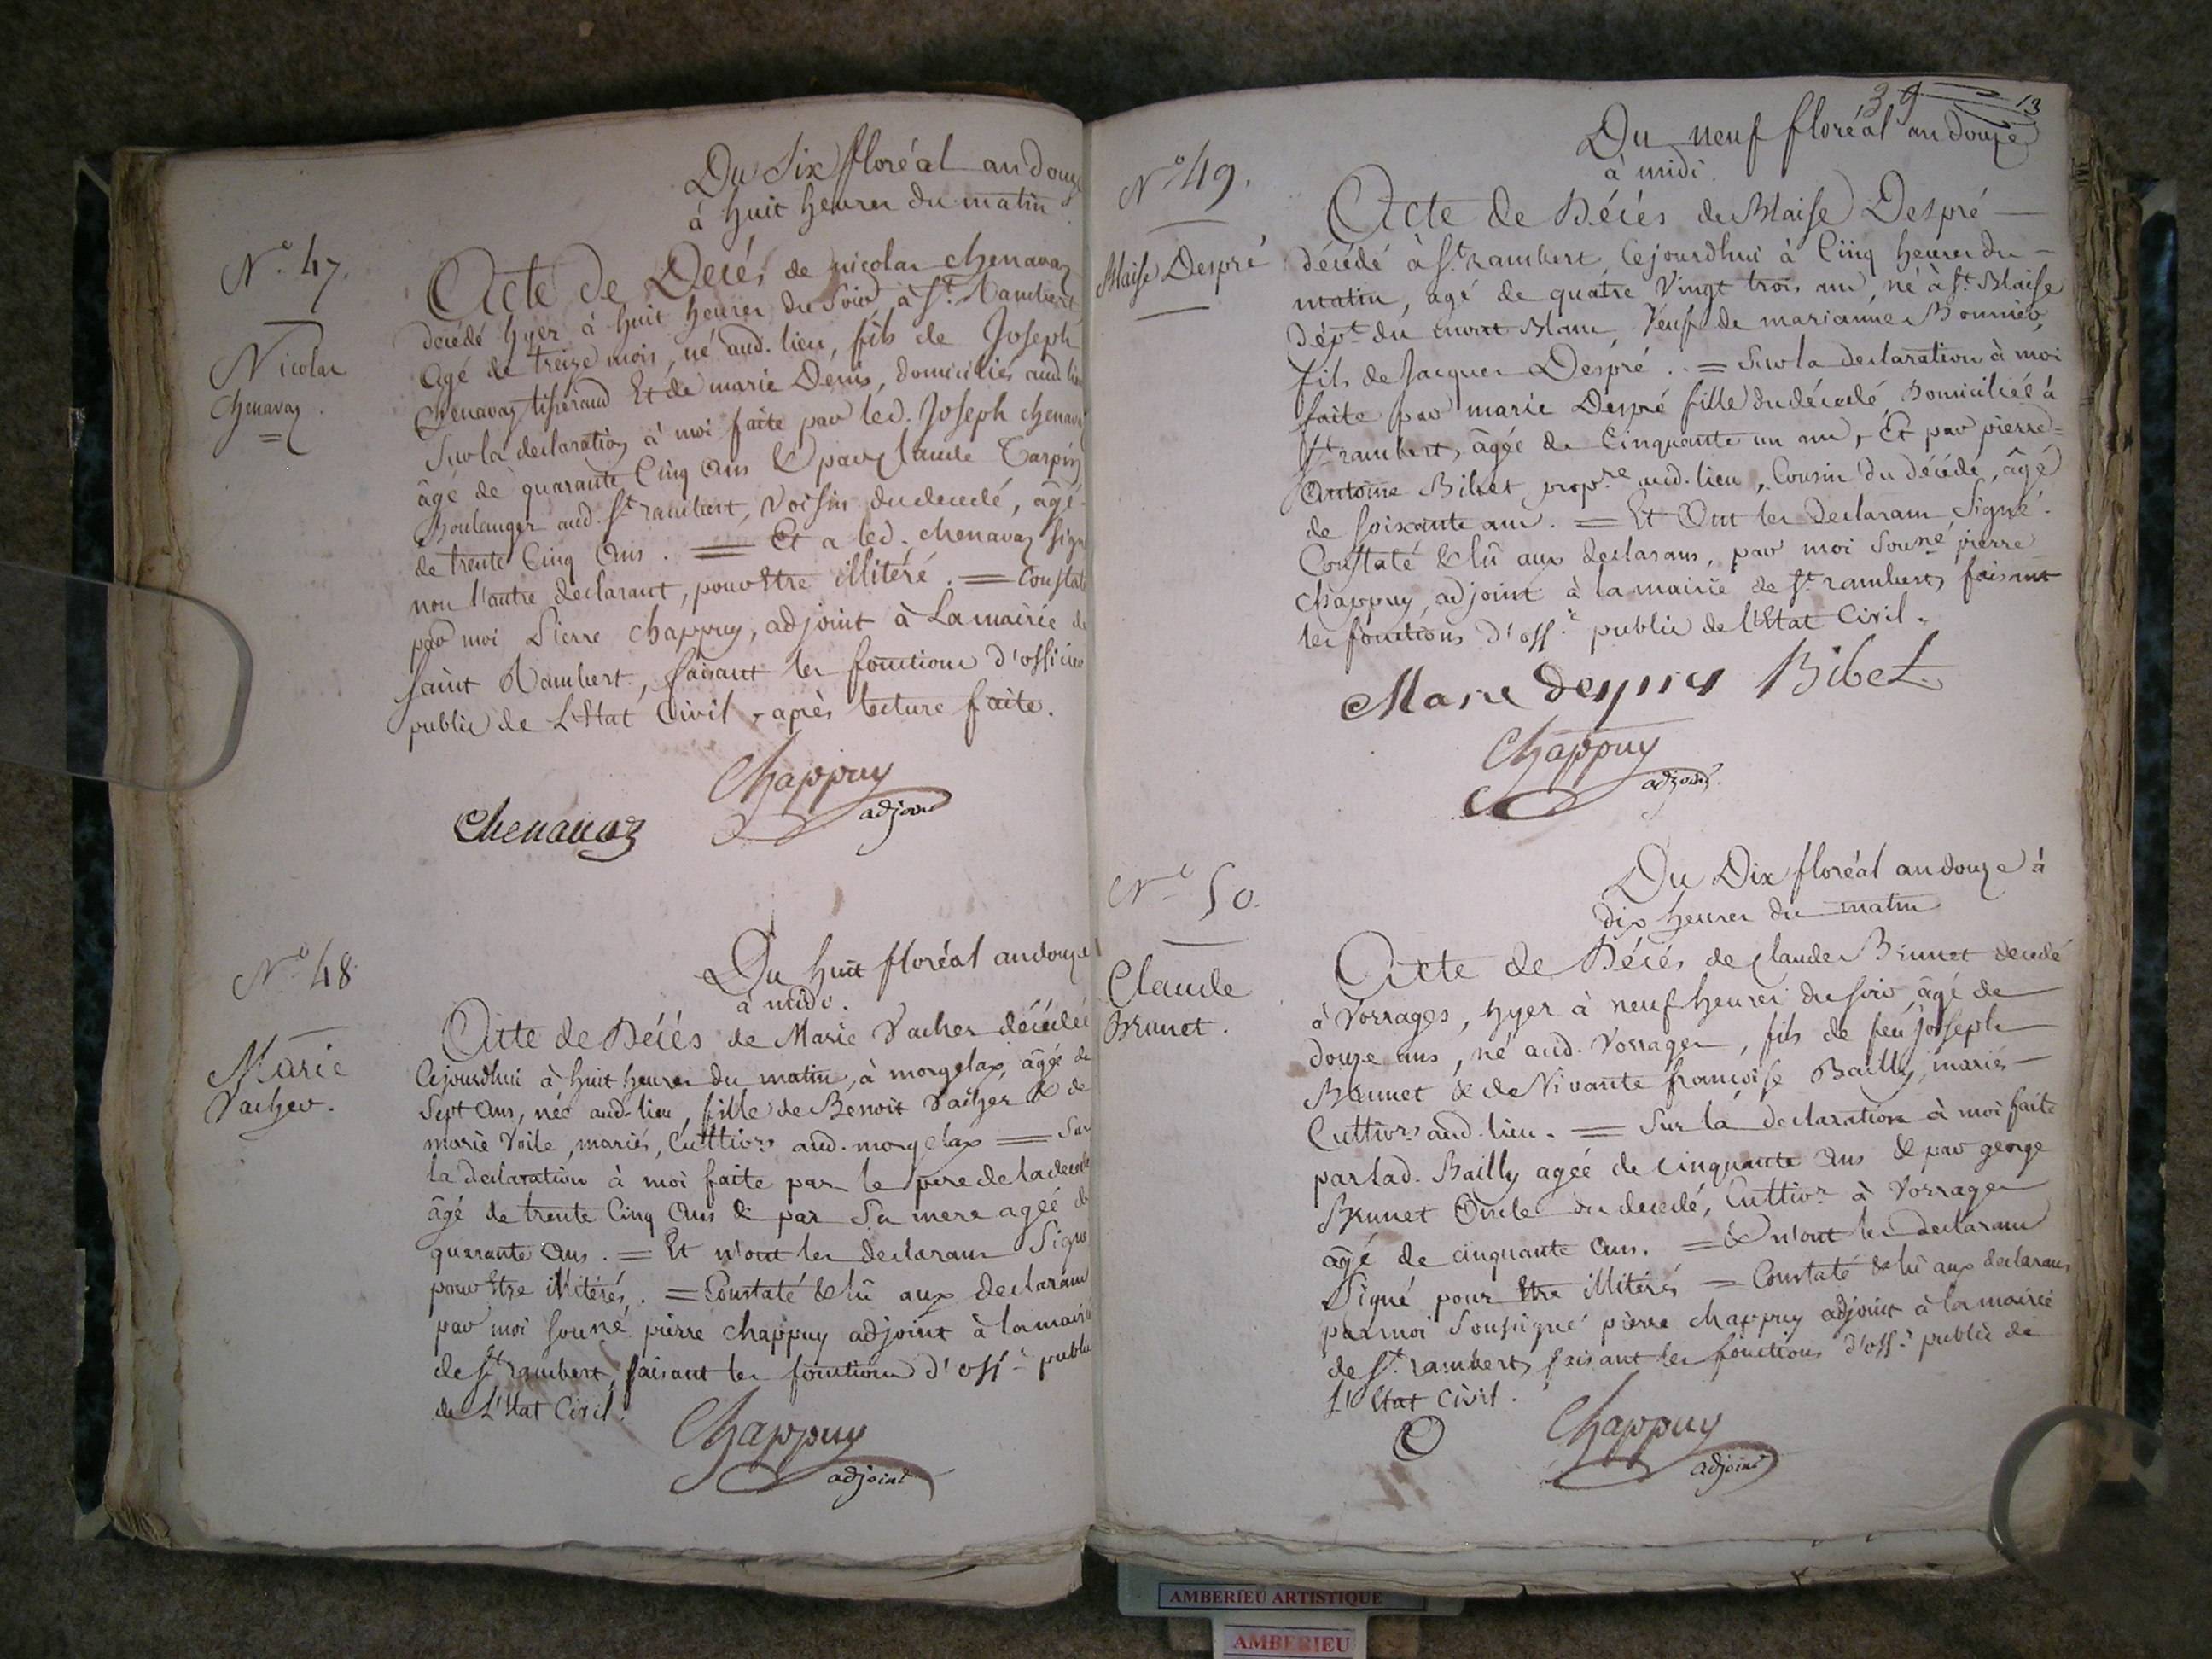 Du Six floréal an douze
à huit heures du matin
N.o 47.
Nicolas
Chenavaz.
Acte de Décés de nicolas chenavaz
décédé hyer à huit heures du Soir à St. Rambert
agé de treize mois, né aud. lieu, fils de Joseph
Chenavaz tisserand Et de marie Denis, domiciliés aud. lieu
Sur la declaration à moi faite par led. Joseph chenavaz
âgé de quarante Cinq ans & par Claude Tarpin
Boulanger aud. St. rambert, Voisin du decedé, âgé
de trente Cinq ans. = Et a led. chenavaz signé
non l'autre declarant, pour Etre illitéré. = Constaté
par moi Pierre Chappuy, adjoint à La mairie de
saint Rambert, faisant les fonctions d'officier
public de L'Etat Civil, après lecture faite.
Chappuy
adjoint
Chenavaz
Du huit floréal an douze
à midi.
N.o 48
Marie
Vacher.
Acte de Décés de Marie Vacher décédée
Cejourdhui à huit heures du matin, à morgelax, âgée de
Sept ans, née aud. lieu, fille de Benoit Vacher & de
marie Voile, mariés, Culttivrs aud. morgelax = Sur
la declaration à moi faite par le pere de la decedée
âgé de trente Cinq ans & par Sa mere agéé de
quarante ans. = Et n'ont les declarans Signé
pour Etre illitérés. = Constaté & lû aux declarans
par moi sousné. pierre Chappuy adjoint à la mairie
de St rambert, faisant les fonctions d'offr. public
de L'Etat Civil.
Chappuy
adjoint
39
13
Du neuf floréal an douze
à midi.
N.o 49.
Blaise Despré
Acte de Décés de Blaise Despré
décédé à St. rambert Cejourdhui à Cinq heures du
matin, agé de quatre Vingt trois ans, né à St. Blaise
Dépt. du mont Blanc Veuf de marianne Bonnier,
fils de Jacques Despré. = Sur la declaration à moi
faite par marie Despré fille du décedé Domiciliéé à
St rambert, âgée de Cinquante un ans, Et par pierre=
Antoine Bibet, propre. aud. lieu, Cousin du décédé, âgé
de soixante ans. = Et Ont les Declarans Signé.
Constaté & lû aux declarans, par moi Sousné. pierre
Chappuy, adjoint à la mairie de St. rambert, faisant
les fonctions d'offr. public de l'Etat Civil.
Marie Despres Bibet
Chappuy
adjoint
Du Dix floréal an douze à
dix heures du matin
N.o 50.
Claude
Brunet.
Acte de Décés de Claude Brunet decedé
à Vorrages, hyer à neuf heures du soir, âgé de
douze ans, né aud. Vorrages, fils de feu joseph
Brunet & de Vivante françoise Bailly, mariés
Culttivrs aud. lieu. = Sur la declaration à moi faite
par lad. Bailly agéé de cinquante ans & par george
Brunet Oncle du decedé, Culttivr. à Vorrages
agé de cinquante ans. = & n'ont les declarans
Signé pour Etre illitérés = Constaté & lû aux declarans
par moi Soussigné pierre chappuy adjoint à la mairie
de St. rambert faisant les fonctions d'offr. public de
L'Etat Civil.
Chappuy
adjoint
AMBERIEU ARTISTIQUE
AMBERIEU